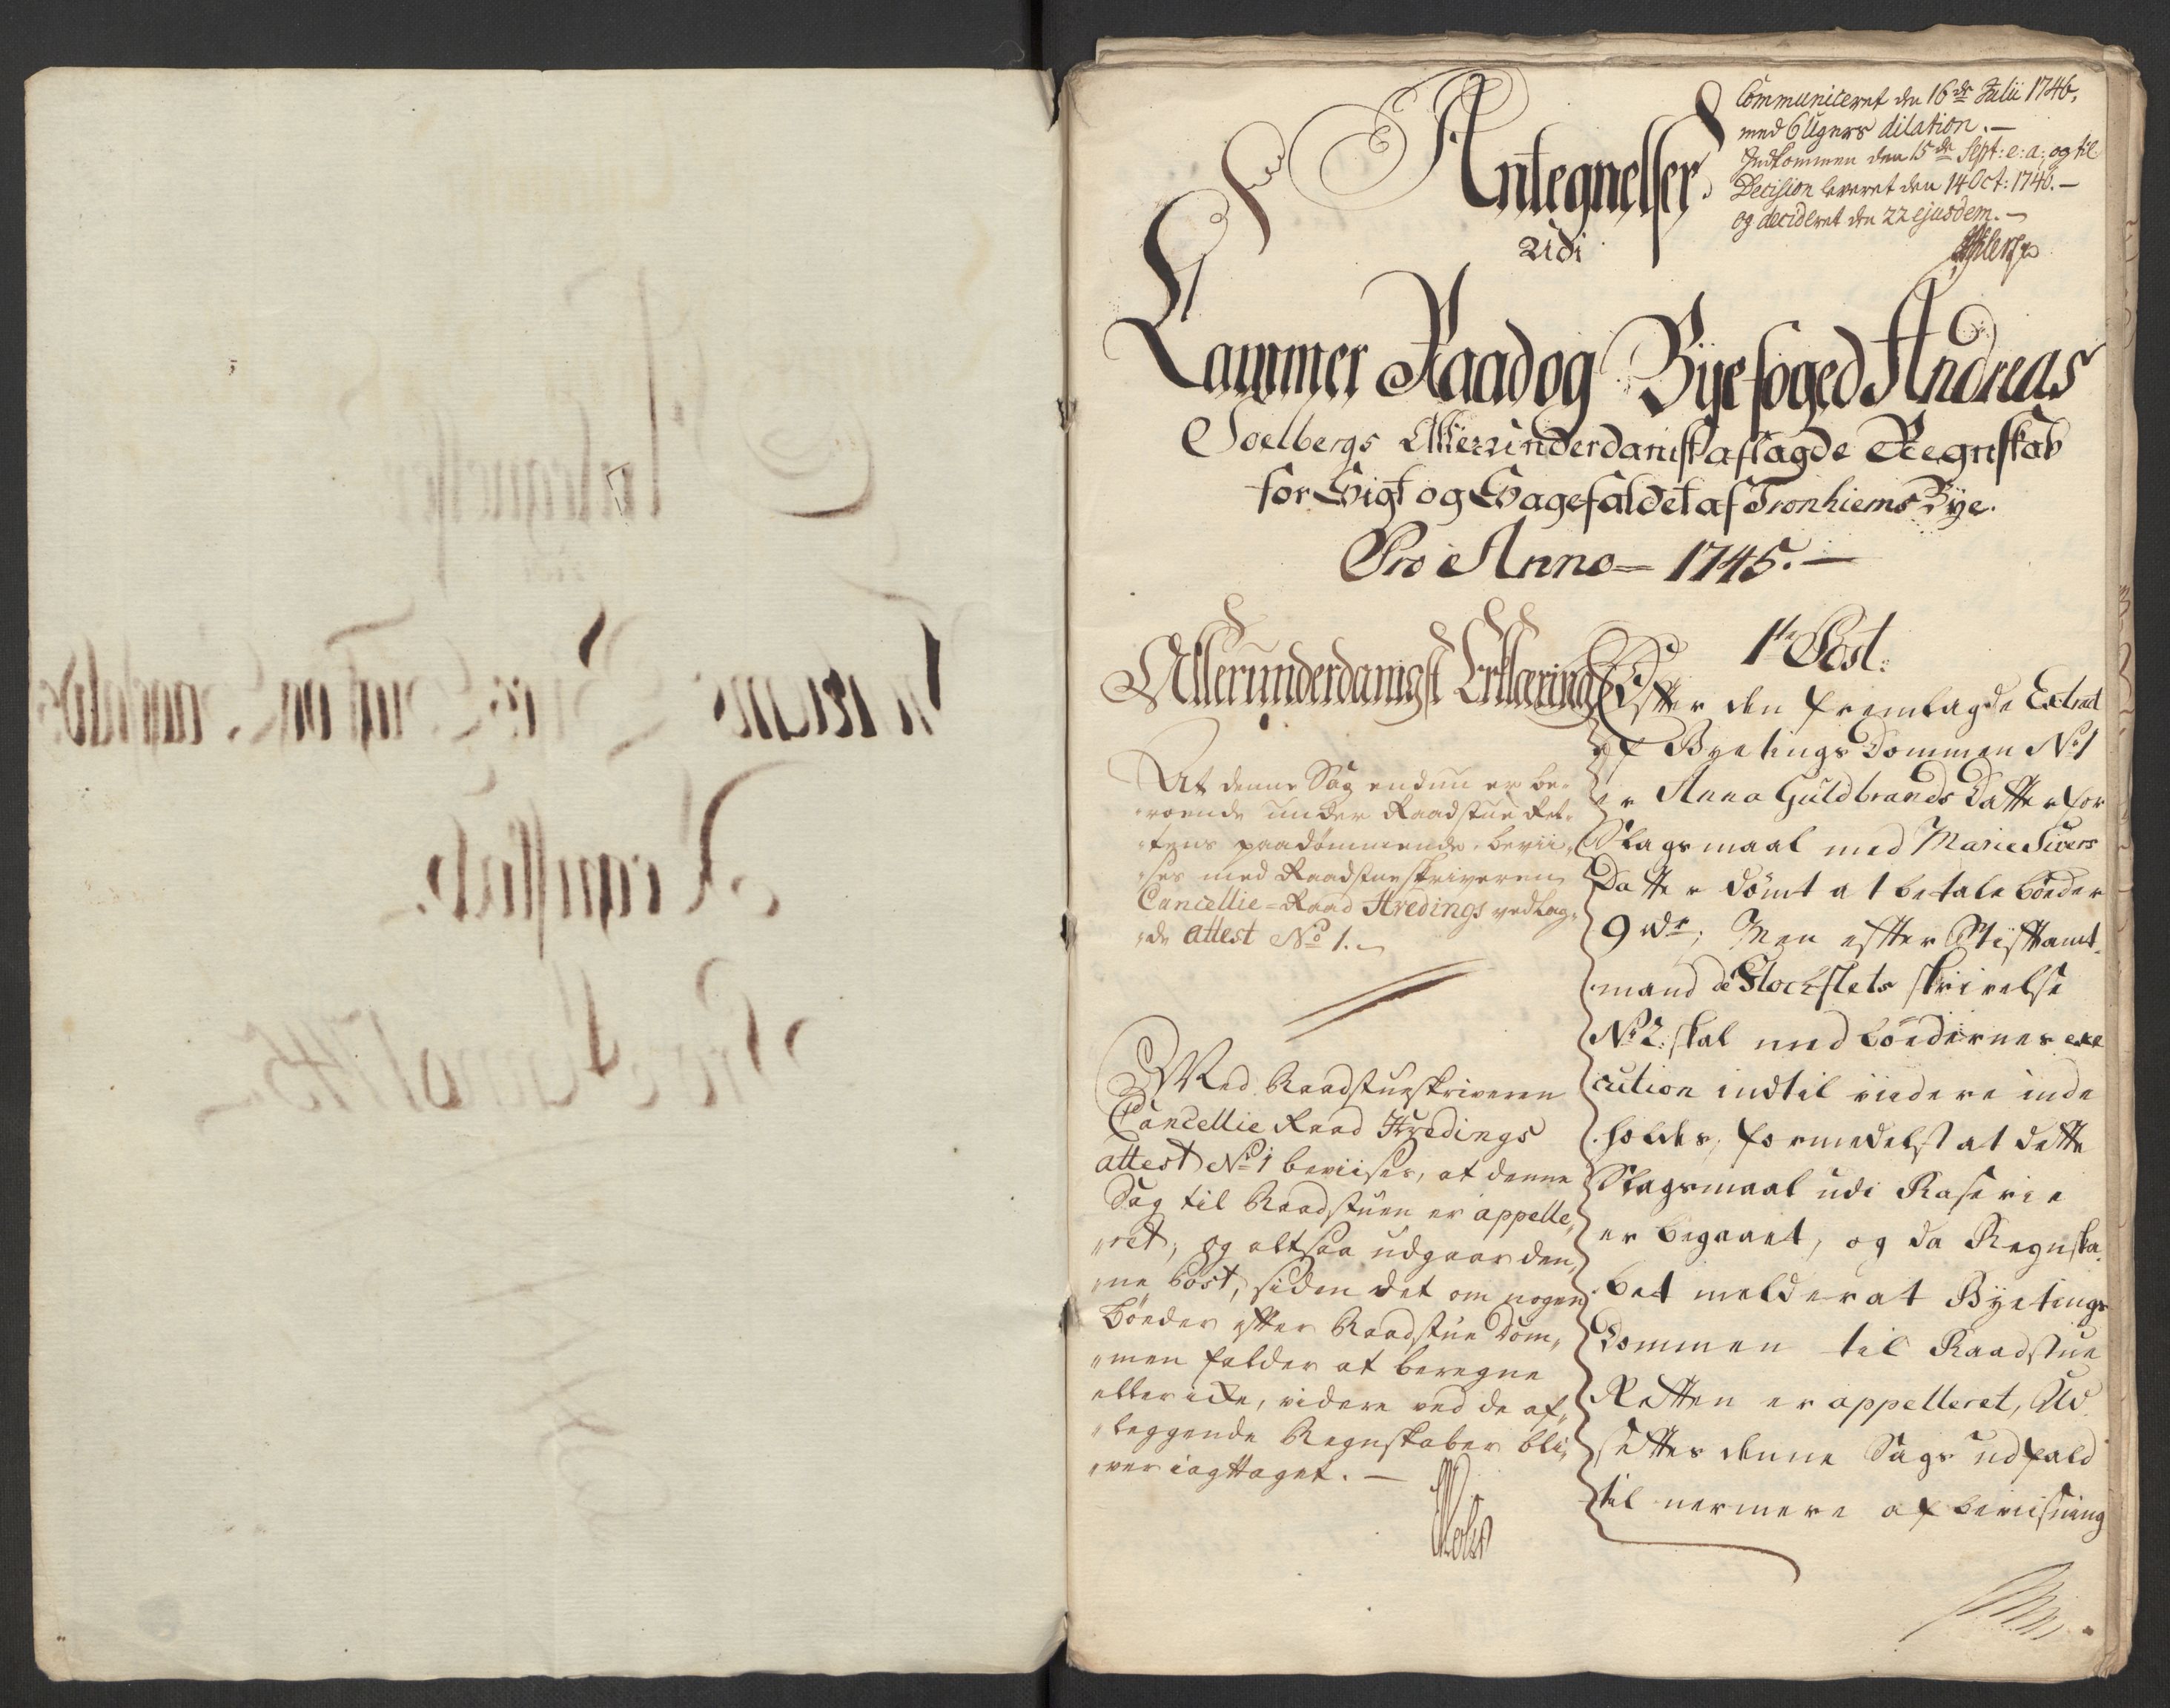 Communiceret den 16de Julii 1746,
med 6 Ugers dilation.—
Indkommen den 15de Sept: e: a:, og til
Decision leveret den 14 Oct: 1746.—
og decideret den 22 ejusdem.—
Antegnelser
Udi
Cammer Raad og Bÿefoged Andreas
Soelbergs Allerunderdanist aflagde Regnskab
for Sigt og Sagefaldet af Tronhiems Bÿe.
Pro Anno 1745.—
Allerunderdanigst Erklæring
At denne Sag endnu er be-
roende under Raadstue Ret-
tens paadömmende, bevii-
ses med Raadstueskriveren
Cancellie-Raad Hredings vedlag-
de attest No 1.—
Med Raadstueskriveren
Cancellie Raad Hredings
attest No 1 beviises, at denne
Sag til Raadstuen er appelle-
ret, og altsaa udgaar den-
ne Post, siden det om nogen
Bøder efter Raadstue Dom-
men falder at beregne
eller icke, videre ved de af-
leggende Regnskaber bli-
ver iagttaget.—
1te Post:
Efter den fremlagde Extract
af Byetings Dommen No 1
er Anna Guldbrands Datter for
Slagsmaal med Marie Sivers
Datter dömt at betale böeder
9 rdr; Men effter Stifftamt-
mand de Stockflets skrivelse
No 2: skal med böedernes exe
cution indtil viidere inde
holdes, formedelst at dette
Slagsmaal udi Raserie
er begaaet, og da Regnska-
bet melder at Byetings
Dommen til Raadstue
Retten er appelleret, Ud
settes denne Sags udfald
til nermere afbeviisning